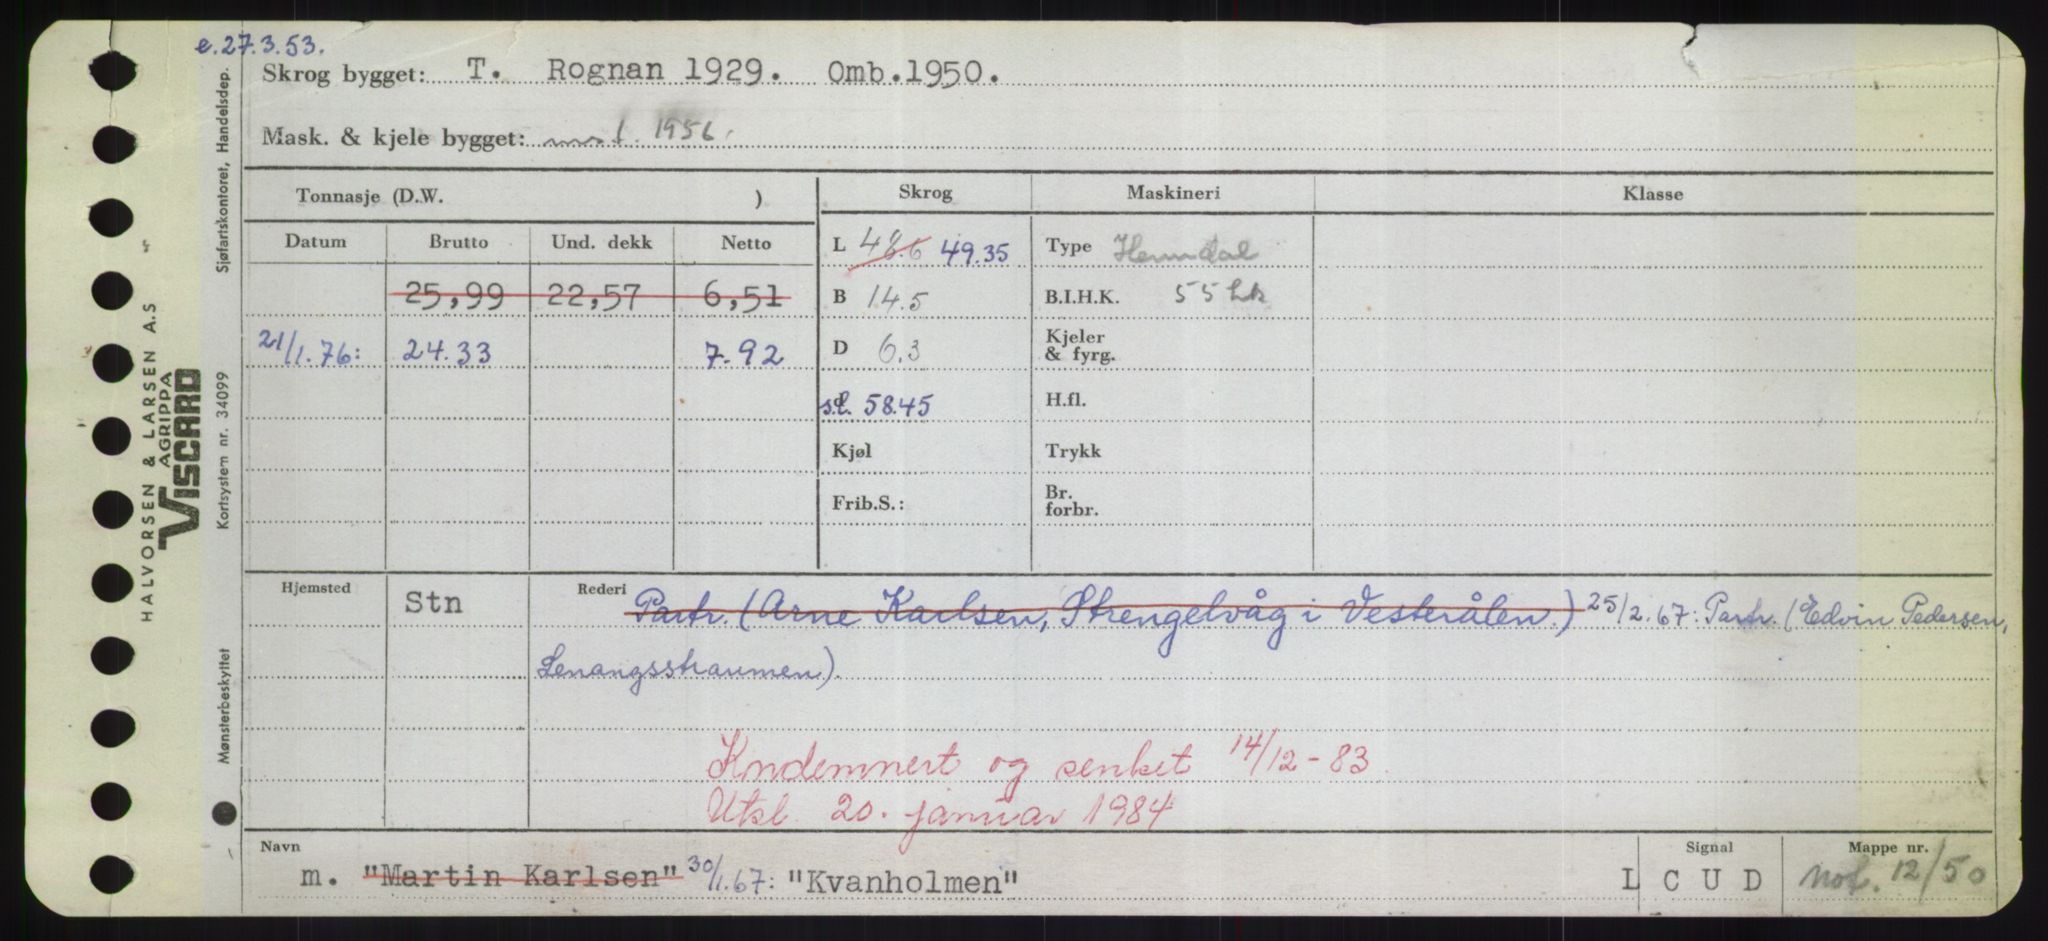 e.27.3.53.
Skrog bygget: T. Rognan 1929. Omb.1950.
Mask. & kjele bygget: 1956.
Tonnasje (D.W. )
Skrog Maskineri Klasse
Datum Brutto Und. dekk Netto
L 48.6 49.35 Type
25,99 22,57 6,51
B 14.5 B.I.H.K. 55 hk
21/1.76: 24.33 7.92
D 6.3 Kjeler
& fyrg.
s.l. 58.45 H.fl.
Kjøl Trykk
Frib.S.: Br.
forbr.
Hjemsted Stn Rederi Partr. (Arne Karlsen, Strengelvåg i Vesterålen.) 25/2.67: Partr. (Edvin Pedersen,
Lenangsstraumen)
Kndemnert og senket 14/12-83.
Utsl 20. januar 1984
Navn Signal Mappe nr.
m. "Martin Karlsen" 30/1.67: "Kvanholmen" L C U D not. 12/50
HALVORSEN & LARSEN A.S
AGRIPPA
VISCARD
Sjøfartskontoret, Handelsdep.
Kortsystem nr. 34099
Mønsterbeskyttet